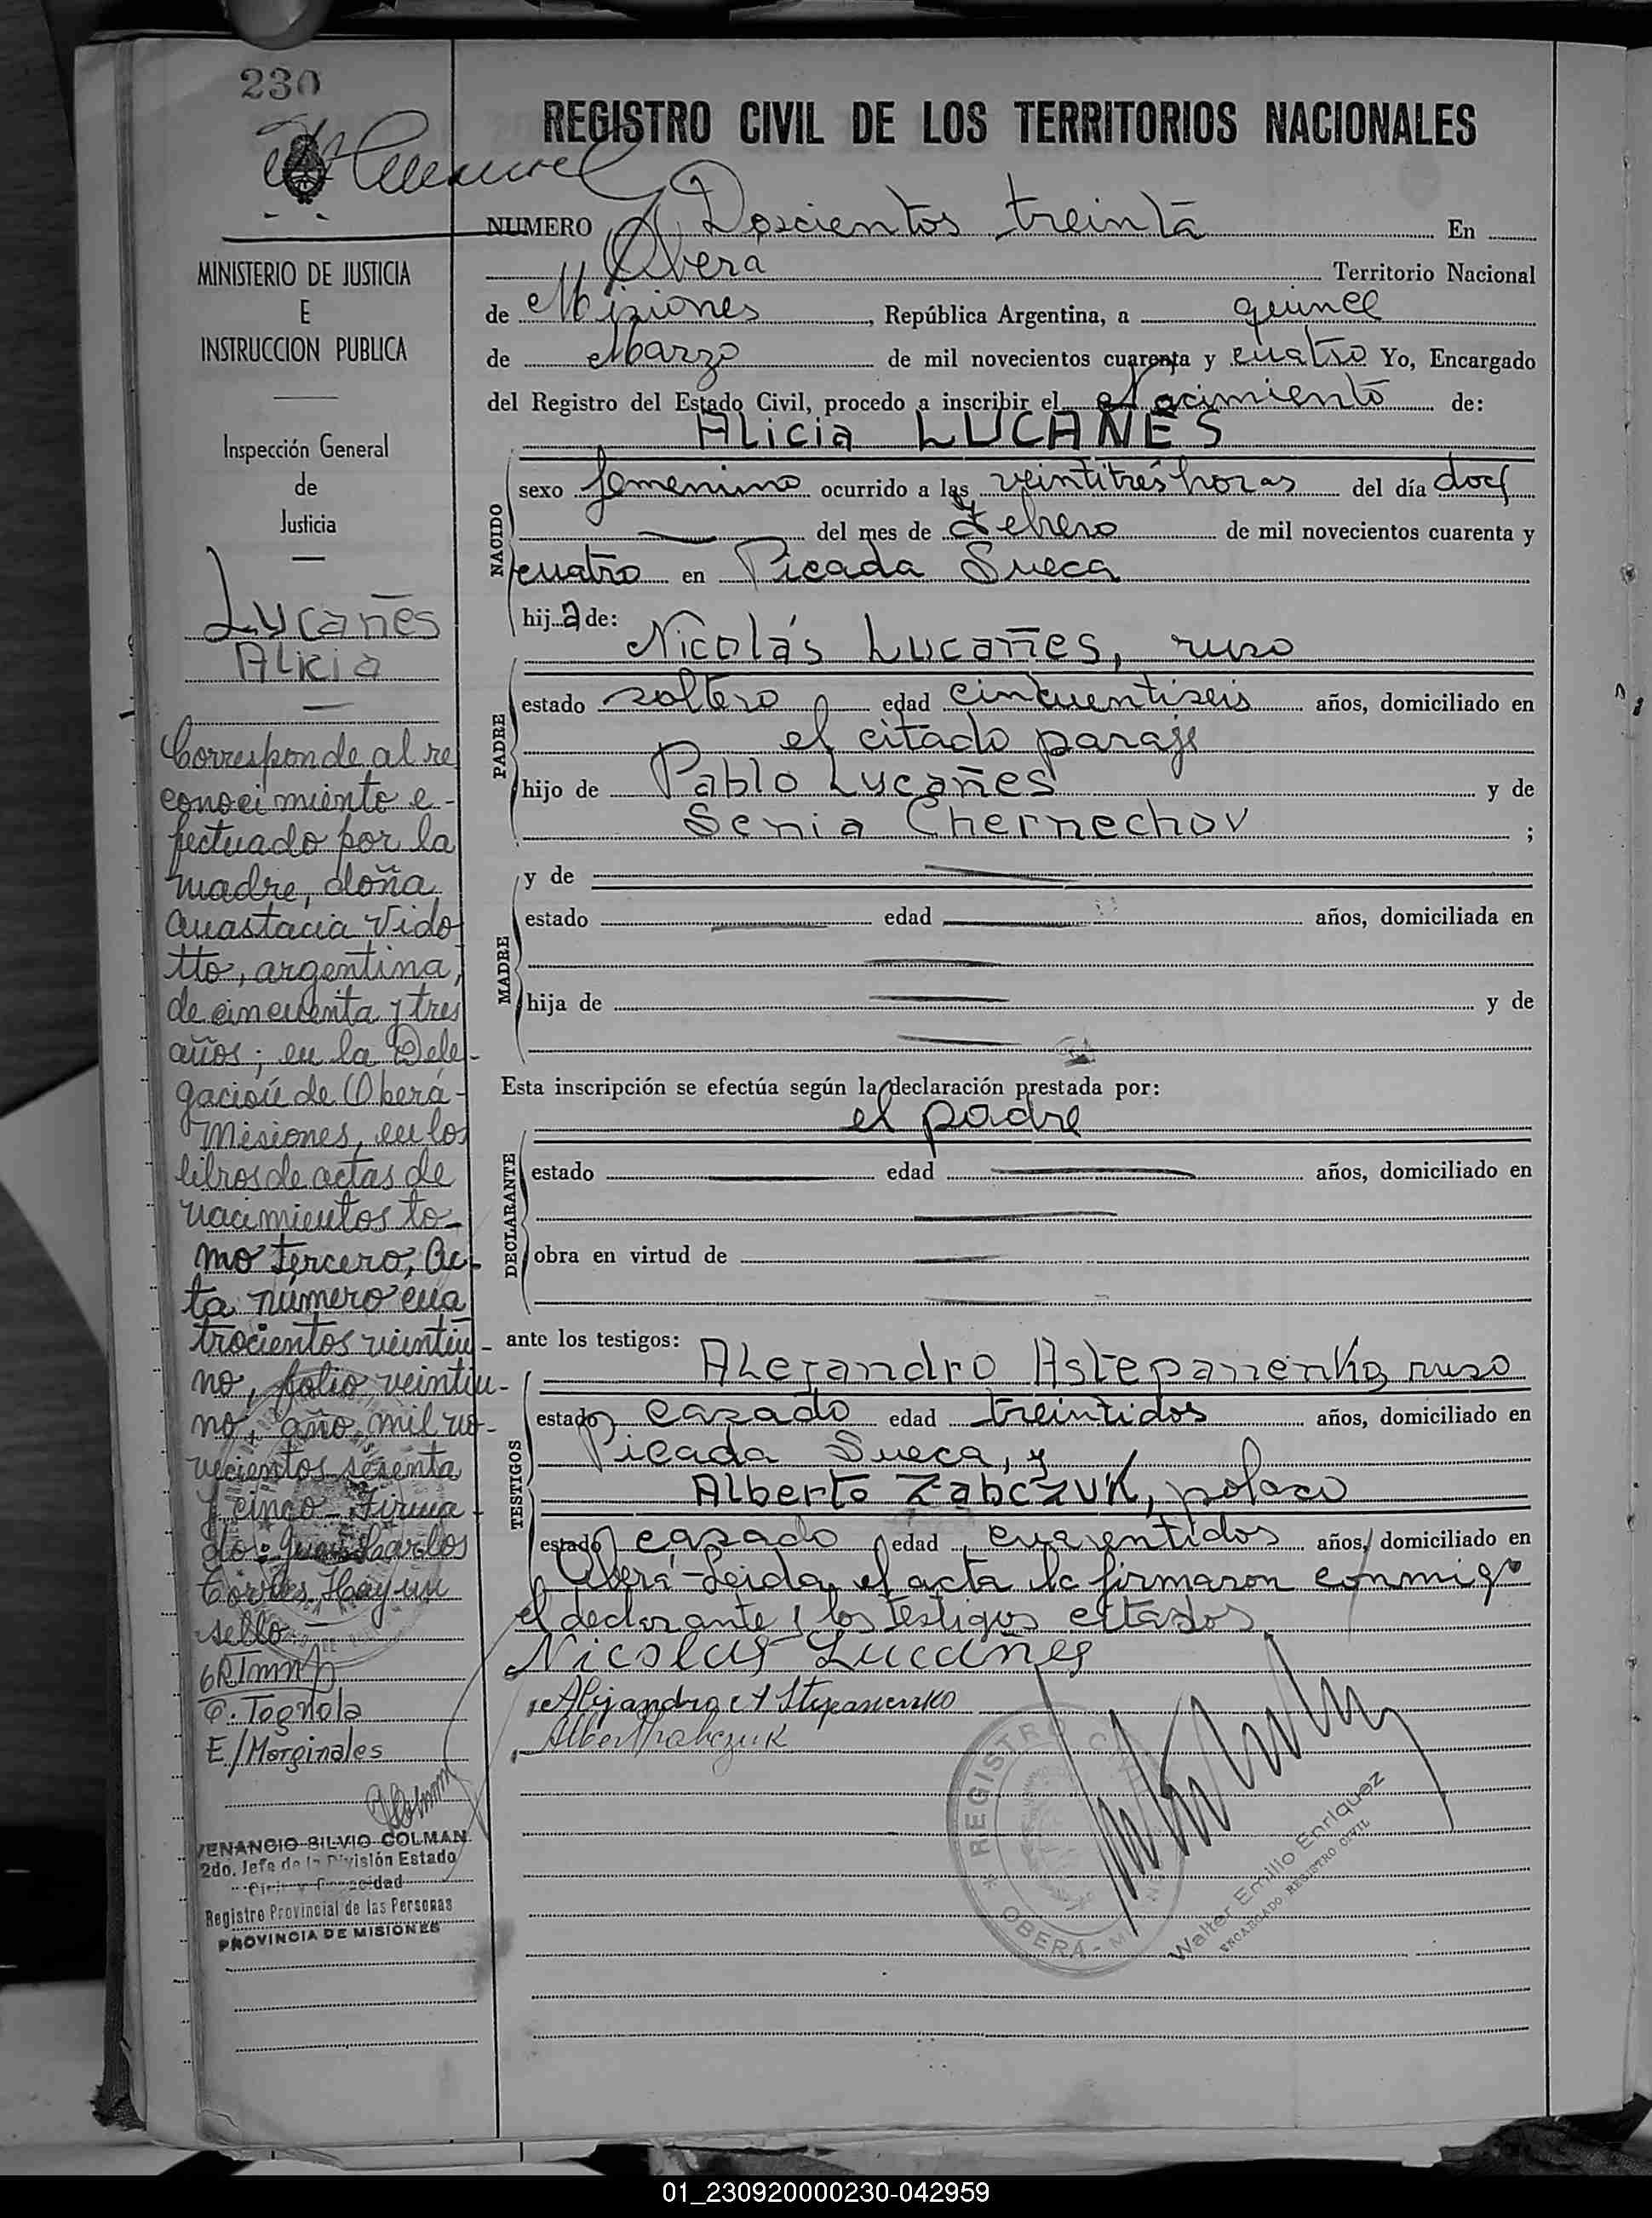 230
REGISTRO CIVIL DE LOS TERRITORIOS NACIONALES
NUMERO Doscientos treinta En
Oberá Territorio Nacional
de Misiones, República Argentina, a quince
de Marzo de mil novecientos cuarenta y cuatro Yo, Encargado
del Registro del Estado Civil, procedo a inscribir el Nacimiento de:
Alicia LUCAÑES
NACIDO
sexo femenino ocurrido a las veintitrés horas del día doce
del mes de Febrero de mil novecientos cuarenta y
cuatro en Picada Sueca
hija de:
PADRE
Nicolás Lucañes, ruso
estado soltero edad cincuentiseis años, domiciliado en
el citado paraje
hijo de Pablo Lucañes y de
Senia Chernechov ;
MADRE
y de
estado edad años, domiciliada en
hija de y de
Esta inscripción se efectúa según la declaración prestada por:
el padre
DECLARANTE
estado edad años, domiciliado en
obra en virtud de
ante los testigos:
TESTIGOS
Alejandro Astepanenko, ruso
estado casado edad treintidos años, domiciliado en
Picada Sueca, y
Alberto Zabczuk, polaco
estado casado edad cuarentidos años, domiciliado en
Oberá-Leida el acta la firmaron conmigo
el declarante y los testigos citados
Nicolas Lucañes
Alejandro Astepanenko
Albert Zabczuk
REGISTRO CIVIL
OBERÁ - MISIONES
Walter Emilio Enriquez
ENCARGADO REGISTRO CIVIL
MINISTERIO DE JUSTICIA
E
INSTRUCCION PUBLICA
Inspección General
de
Justicia
Lucañes
Alicia
Corresponde al re
conocimiento e-
fectuado por la
madre, doña
Anastacia Vido
tto, argentina,
de cincuenta y tres
años; en la Dele-
gación de Oberá-
Misiones, en los
libros de actas de
nacimientos to-
mo tercero, Ac-
ta número cua
trocientos veintiu-
no, folio veintiu-
no, año mil no-
vecientos sesenta
y cinco. Firma-
do: Juan Carlos
Torres. Hay un
sello.
C. Tognola
E/Marginales
VENANCIO SILVIO COLMAN
2do. Jefe de la División Estado
Civil y Capacidad
Registro Provincial de las Personas
PROVINCIA DE MISIONES
01_230920000230-042959